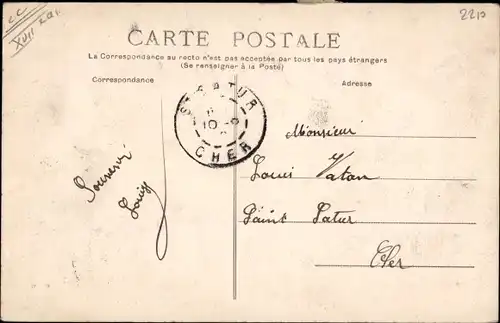 CC
XVII
2210
CARTE POSTALE
La Correspondance au recto n'est pas acceptée par tous les pays étrangers
(Se renseigner à la Poste)
Correspondance
Adresse
ST SATUR
10
CHER
Souvenir
Louis
Monsieur
Louis Vatan
Saint Satur
Cher